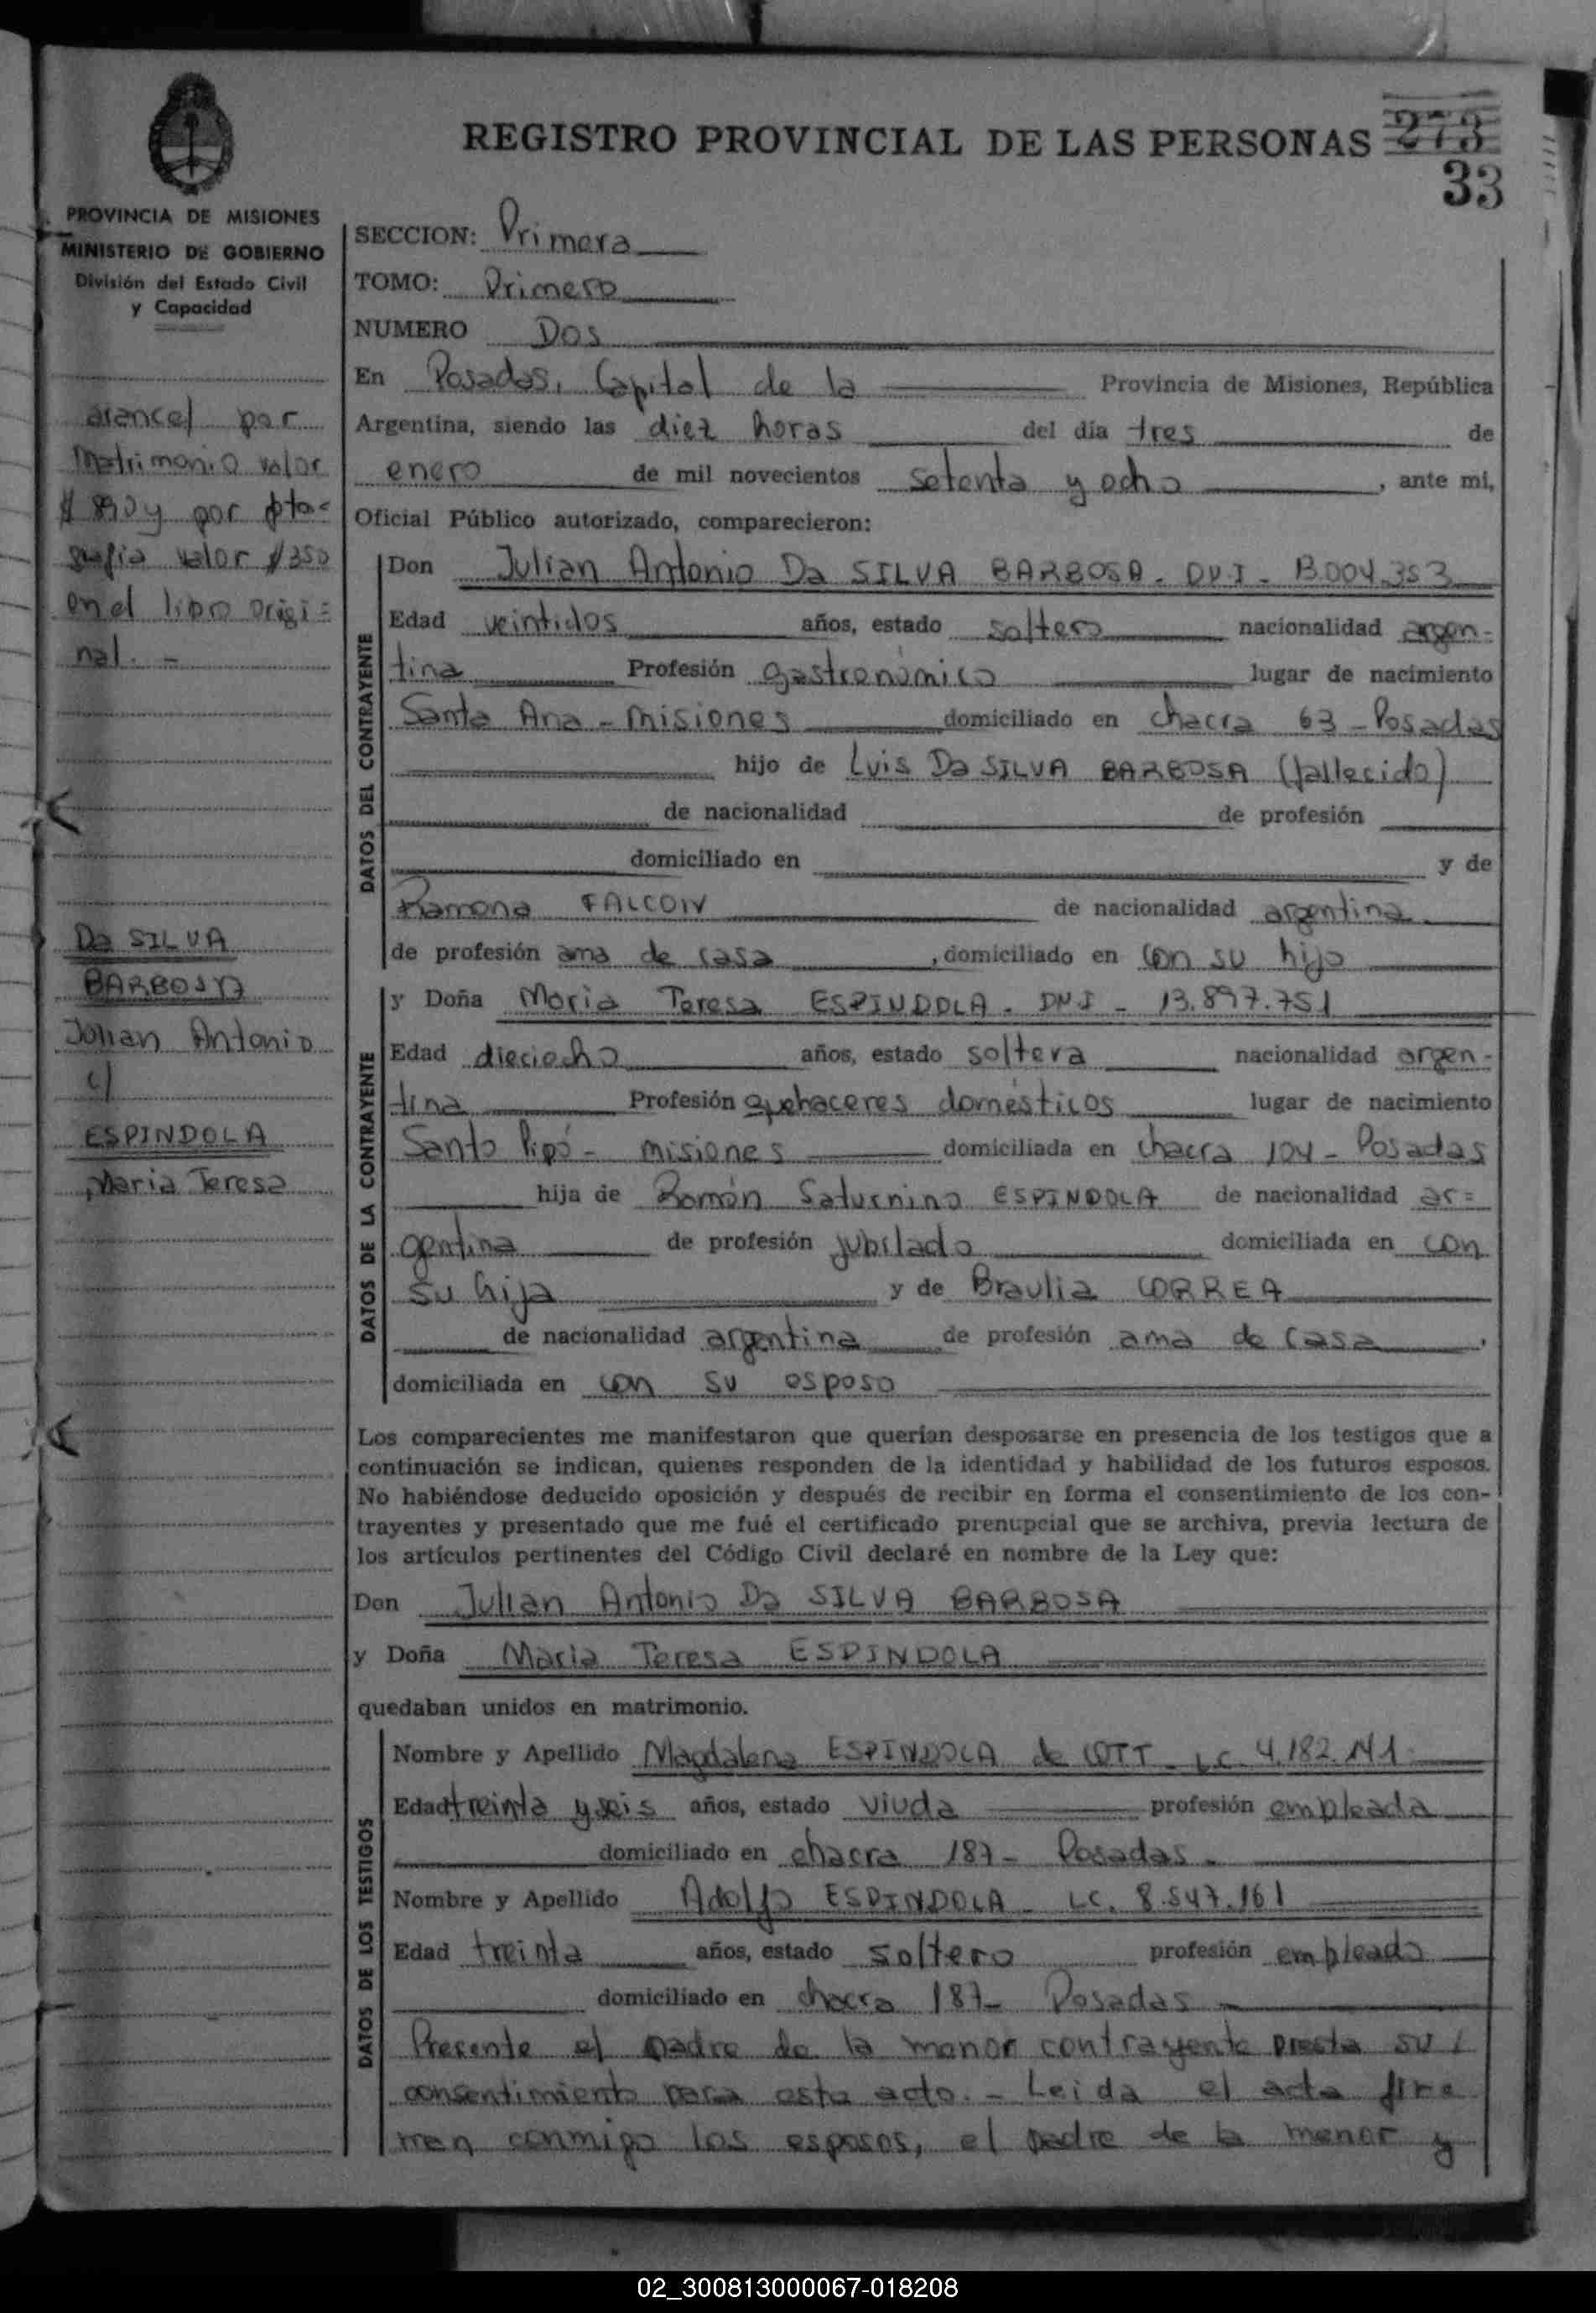 REGISTRO PROVINCIAL DE LAS PERSONAS 273
33
PROVINCIA DE MISIONES
MINISTERIO DE GOBIERNO
División del Estado Civil
y Capacidad
arancel por
Matrimonio valor
y por foto=
grafia valor $350
en el libro origi=
nal. -
Da SILVA
BARBOSA
Julian Antonio
c/
ESPINDOLA
Maria Teresa
SECCION: Primera
TOMO: Primero
NUMERO Dos
En Posadas, Capital de la Provincia de Misiones, República
Argentina, siendo las diez horas del día tres de
enero de mil novecientos setenta y ocho, ante mí,
Oficial Público autorizado, comparecieron:
DATOS DEL CONTRAYENTE
Don Julian Antonio Da SILVA BARBOSA - D.N.I - 13.004.353
Edad veintidos años, estado soltero nacionalidad argen-
tina Profesión gastronómico lugar de nacimiento
Santa Ana - Misiones domiciliado en chacra 63 - Posadas
hijo de Luis Da SILVA BARBOSA (fallecido)
de nacionalidad de profesión
domiciliado en y de
Ramona FALCON de nacionalidad argentina
de profesión ama de casa, domiciliado en con su hijo
DATOS DE LA CONTRAYENTE
y Doña Maria Teresa ESPINDOLA - DNI - 13.897.751
Edad dieciocho años, estado soltera nacionalidad argen-
tina Profesión quehaceres domésticos lugar de nacimiento
Santo Pipó - Misiones domiciliada en chacra 104 - Posadas
hija de Román Saturnino ESPINDOLA de nacionalidad ar=
gentina de profesión jubilado domiciliada en con
su hija y de Braulia CORREA
de nacionalidad argentina de profesión ama de casa,
domiciliada en con su esposo
Los comparecientes me manifestaron que querían desposarse en presencia de los testigos que a
continuación se indican, quienes responden de la identidad y habilidad de los futuros esposos.
No habiéndose deducido oposición y después de recibir en forma el consentimiento de los con-
trayentes y presentado que me fué el certificado prenupcial que se archiva, previa lectura de
los artículos pertinentes del Código Civil declaré en nombre de la Ley que:
Don Julian Antonio Da SILVA BARBOSA
y Doña Maria Teresa ESPINDOLA
quedaban unidos en matrimonio.
DATOS DE LOS TESTIGOS
Nombre y Apellido Magdalena ESPINDOLA de COTT - L.C. 4.182.141
Edad treinta y seis años, estado viuda profesión empleada
domiciliado en chacra 187 - Posadas -
Nombre y Apellido Adolfo ESPINDOLA - LC. 8.547.161
Edad treinta años, estado soltero profesión empleado
domiciliado en chacra 187 - Posadas -
Presente el padre de la menor contrayente presta su
consentimiento para este acto. - Leida el acta fir=
man conmigo los esposos, el padre de la menor y
02_300813000067-018208